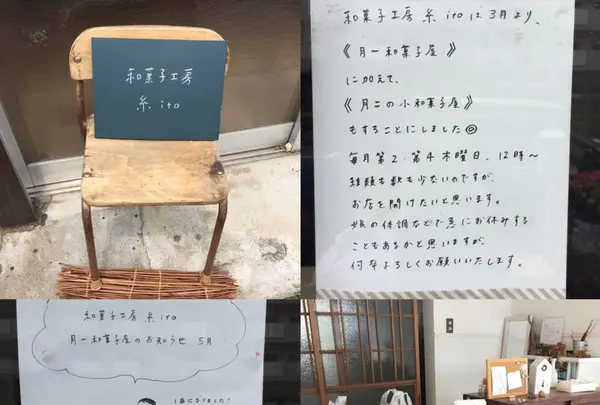 和菓子工房
糸 ito
和菓子工房 糸 itoは3月より、
《月一和菓子屋》
に加えて、
《月二の小和菓子屋》
もすることにしました◎
毎月第2・第4木曜日、12時〜
種類も数も少ないのですが、
お店を開けたいと思います。
娘の体調などで急にお休みする
こともあるかと思いますが、
何卒よろしくお願いいたします。
和菓子工房 糸 ito
月一和菓子屋のお知らせ 5月
1歳になりました!